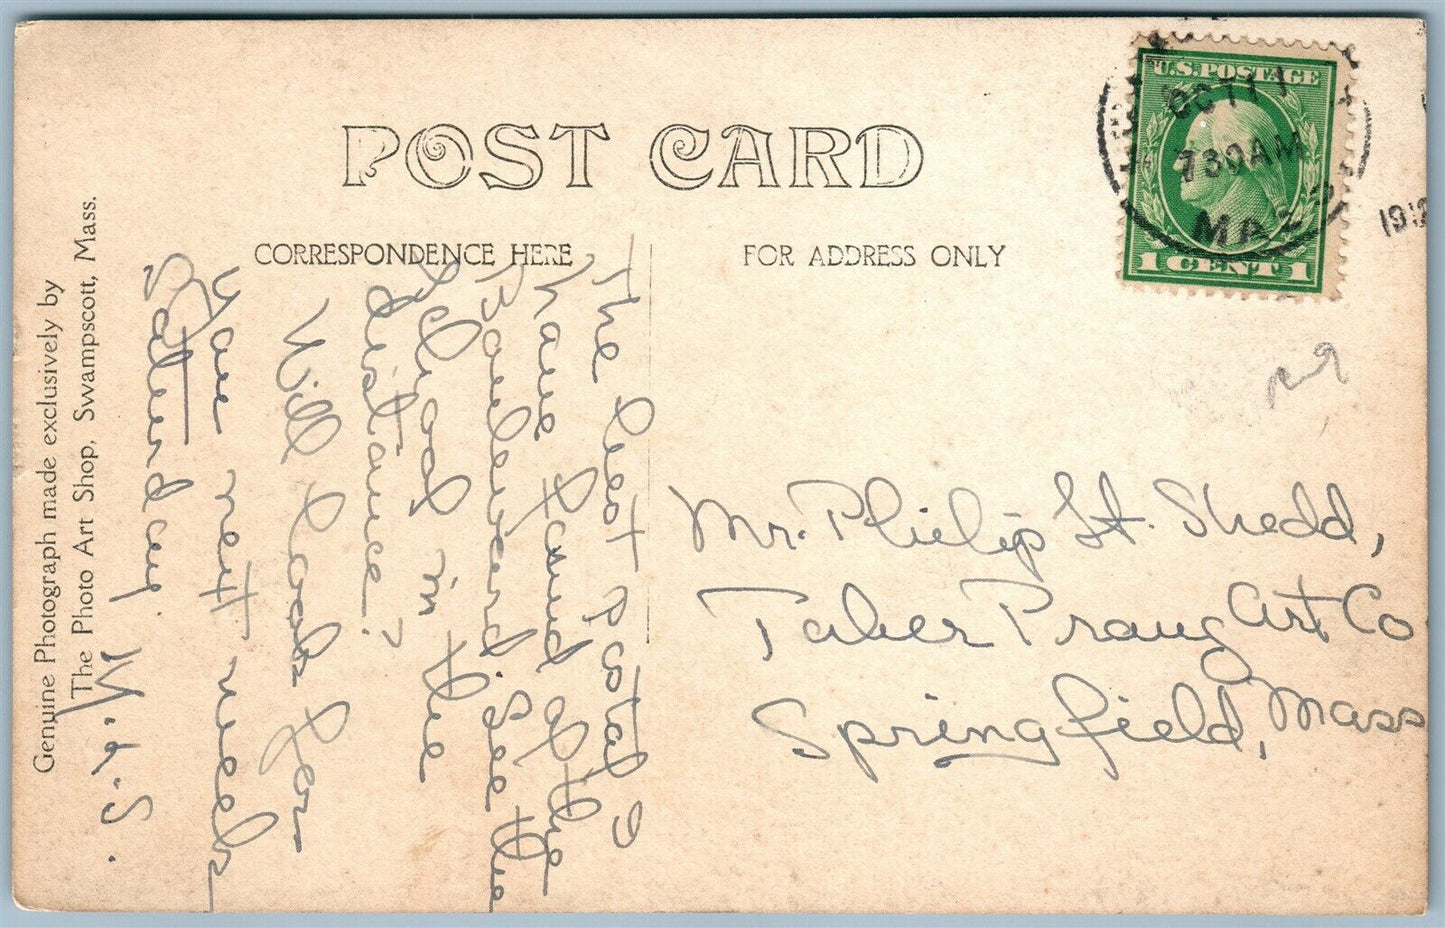 POST CARD
CORRESPONDENCE HERE
FOR ADDRESS ONLY
U.S. POSTAGE
1 CENT 1
OCT 11
730AM
MASS
The best postal I
have found of the
Boulevard. See the
School in the
distance?
Will look for
you next week
Saturday.
M. L. S.
Mr. Philip St. Shedd,
Taber Prang Art Co
Springfield, Mass
Genuine Photograph made exclusively by
The Photo Art Shop, Swampscott, Mass.